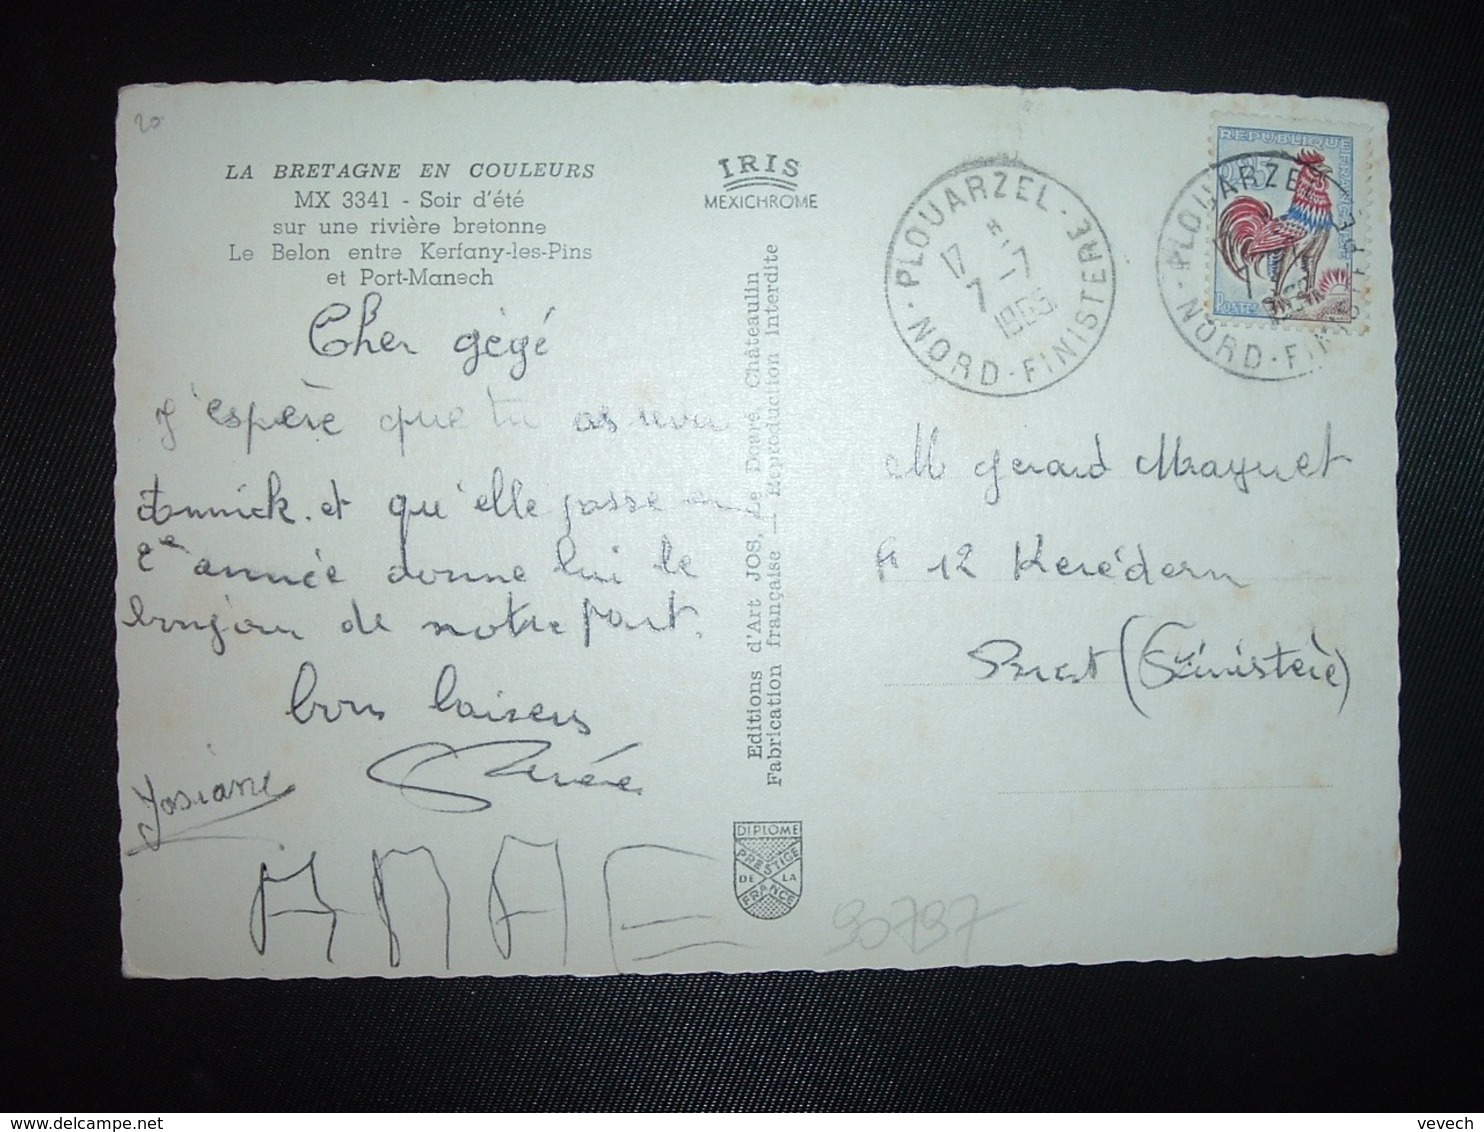 20
LA BRETAGNE EN COULEURS
MX 3341 - Soir d'été
sur une rivière bretonne
Le Belon entre Kerfany-les-Pins
et Port-Manech
IRIS
MEXICHROME
Cher gégé
J'espère que tu as revu
Annick. et qu'elle passe en
2e année donne lui le
bonjour de notre part.
bons baisers
Renée
Josiane
Editions d'Art JOS, Le Doaré, Châteaulin
Fabrication française — Reproduction interdite
DIPLOME
PRESTIGE
DE LA
FRANCE
PLOUARZEL - NORD-FINISTERE
17 H
7-7
1965
REPUBLIQUE FRANÇAISE
POSTES
PLOUARZEL
NORD-FINIS
M Gérard Maguet
12 Kerédern
Brest (Finistère)
90797
vevech